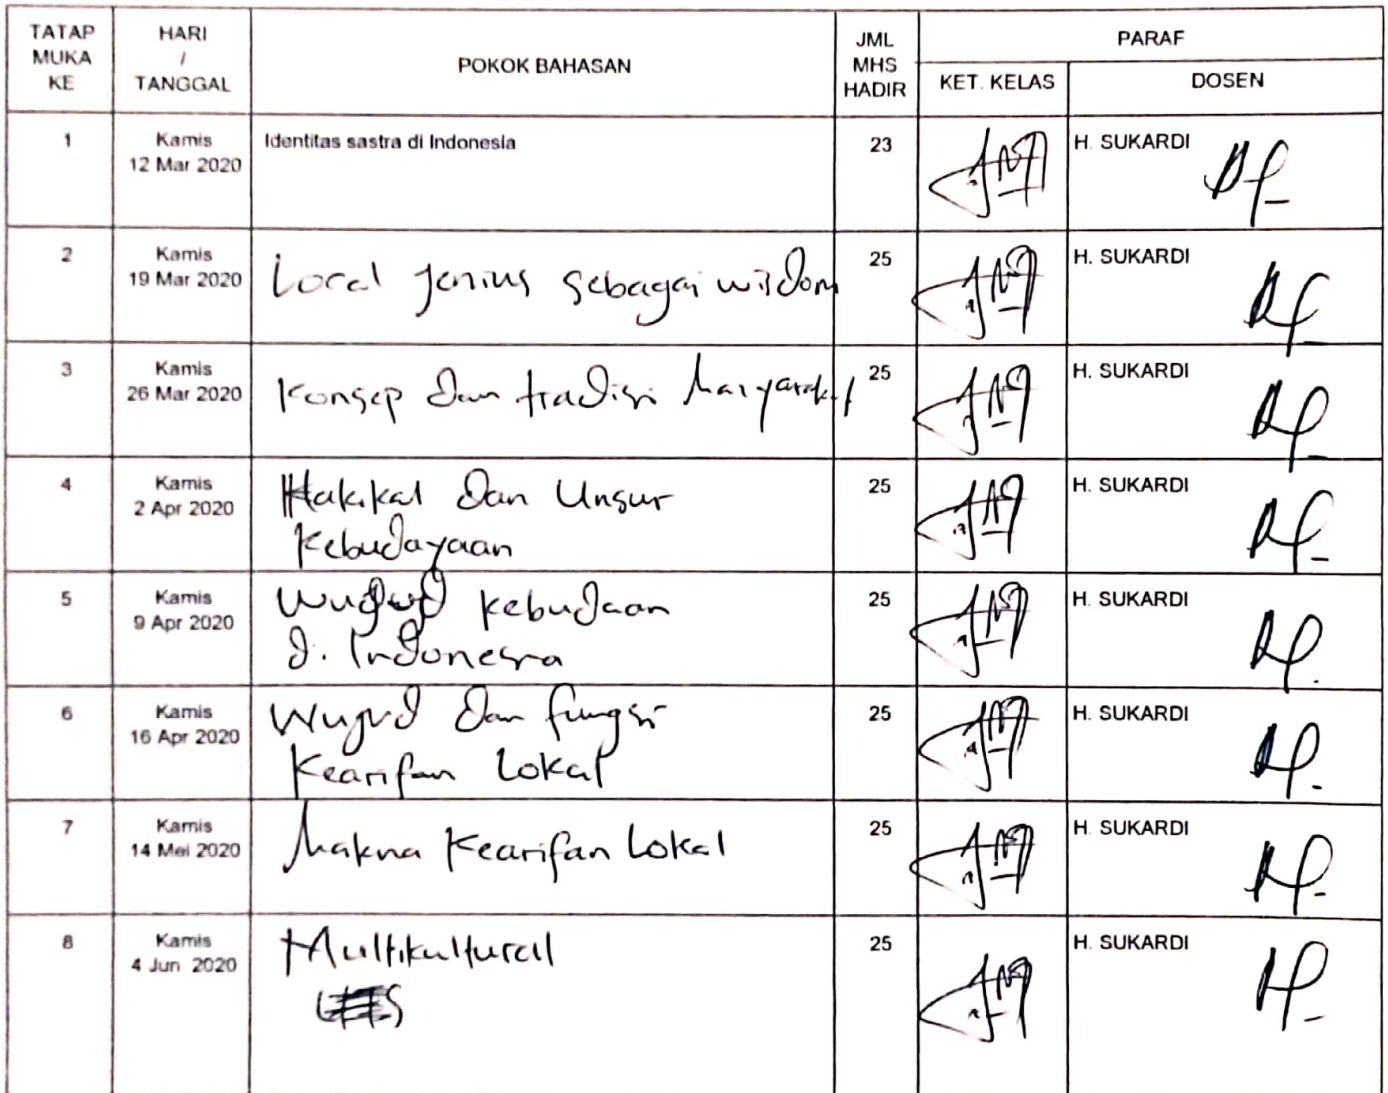 TATAP MUKA KE
HARI / TANGGAL
POKOK BAHASAN
JML MHS HADIR
PARAF
KET. KELAS
DOSEN
1
Kamis
12 Mar 2020
Identitas sastra di Indonesia
23
H. SUKARDI
2
Kamis
19 Mar 2020
Local jenius sebagai wisdom
25
H. SUKARDI
3
Kamis
26 Mar 2020
Konsep dan tradisi Masyarakat
25
H. SUKARDI
4
Kamis
2 Apr 2020
Hakikat dan Unsur
Kebudayaan
25
H. SUKARDI
5
Kamis
9 Apr 2020
Wujud kebudaan
di Indonesia
25
H. SUKARDI
6
Kamis
16 Apr 2020
Wujud dan fungsi
Kearifan Lokal
25
H. SUKARDI
7
Kamis
14 Mei 2020
Makna Kearifan Lokal
25
H. SUKARDI
8
Kamis
4 Jun 2020
Multikultural
25
H. SUKARDI